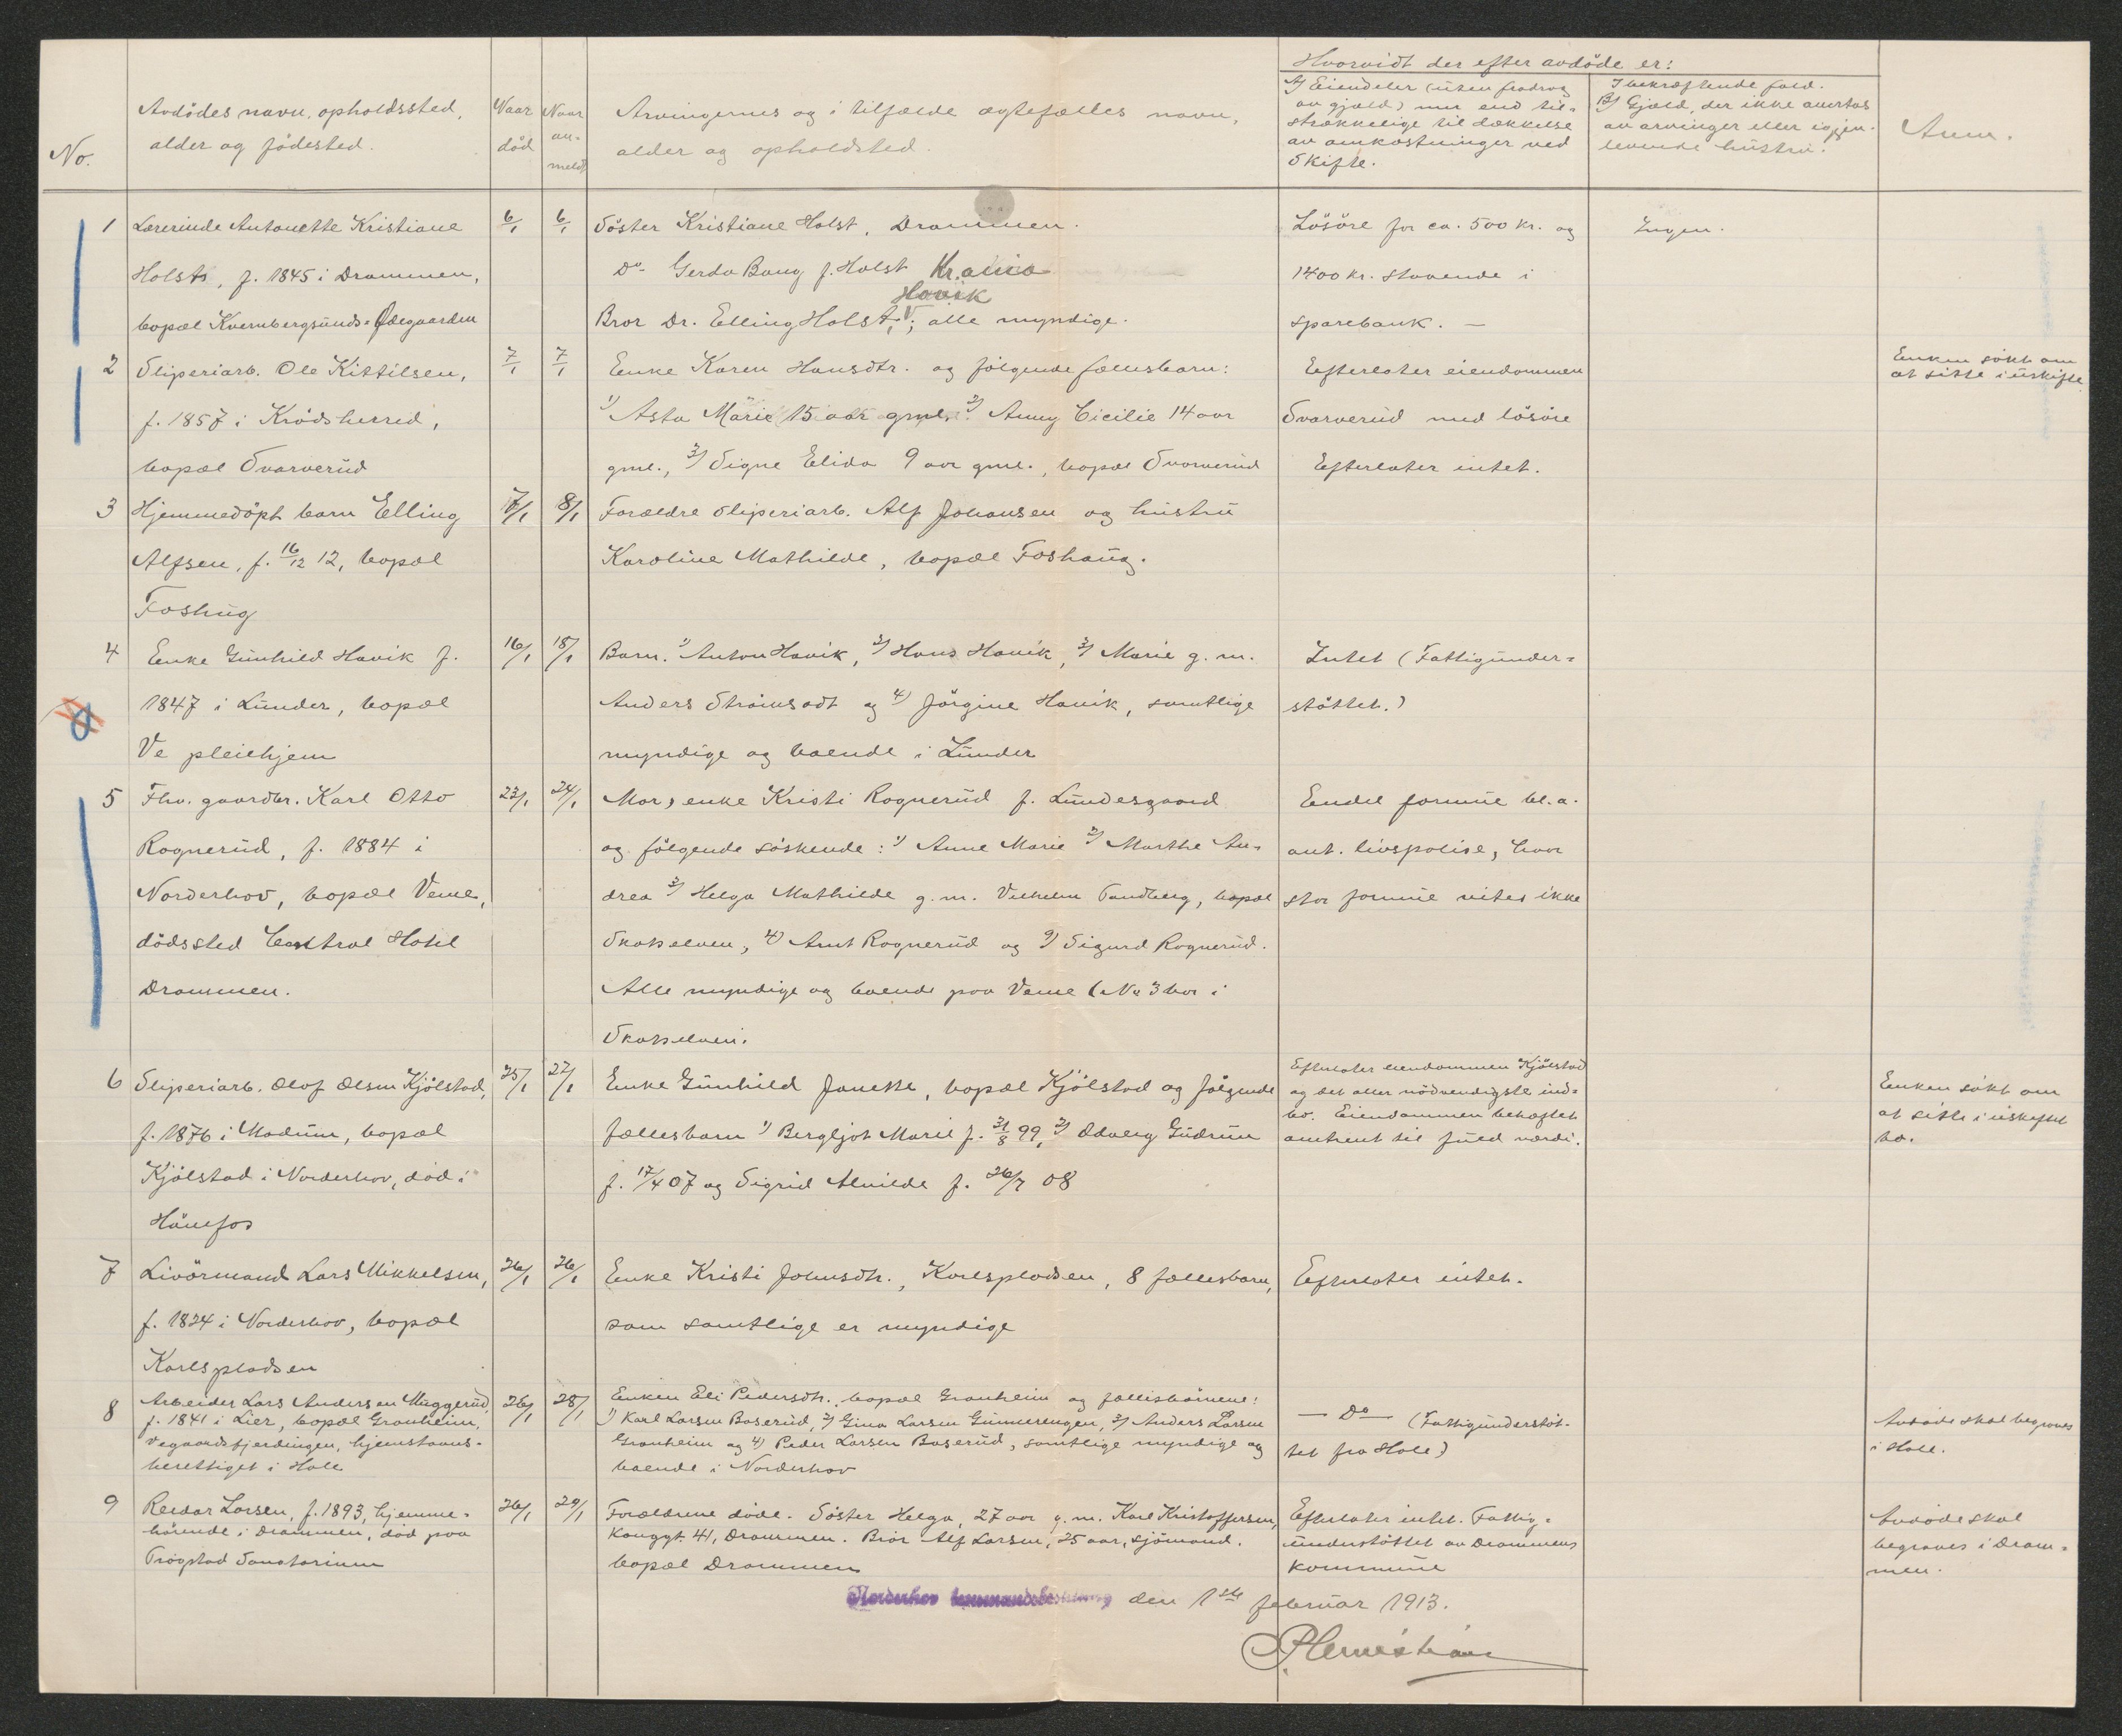 Hvorvidt der efter avdöde er:
No.
Avdödes navn, opholdssted,
alder og födested.
Naar
död
Naar
an-
meldt
Arvingernes og i tilfælde ægtefælles navn,
alder og opholdsted.
A) Eiendeler (uten fradrag
av gjæld) mer end til-
strækkelige til dækkelse
av omkostninger ved
Skifte.
I bekræftende fald.
B) Gjæld, der ikke overtas
av arvinger eller igjen-
levende hustru.
Anm.
1
Lærerinde Antonette Kristiane
Holst, f. 1845 i Drammen,
bopæl Kvernbergsunds-Ødegaarden
6/1
6/1
Söster Kristiane Holst, Drammen.
Do Gerda Bang f. Holst Kr.ania
Hovik
Bror Dr. Elling Holst, ; alle myndige.
Lösöre for ca. 500 kr. og
1400 kr. staaende i
sparebank. —
Ingen.
2
Sliperiarb. Ole Kittilsen,
f. 1857 i Krödsherred,
bopæl Svarverud
7/1
7/1
Enke Karen Hansdtr. og fölgende fællesbarn:
1) Asta Marie 15 aar gml. 2) Anny Cicilie 14 aar
gml., 3) Signe Elida 9 aar gml., bopæl Svarverud
Efterlater eiendommen
Svarverud med lösöre
Enken sökt om
at sitte i uskifte
3
Hjemmedöpt barn Elling
Alfsen, f. 16/12 12, bopæl
Foshug
7/1
8/1
Forældre sliperiarb. Alf Johansen og hustru
Karoline Mathilde, bopæl Foshaug.
Efterlater intet.
4
Enke Gunhild Havik f.
1847 i Lunder, bopæl
Ve pleiehjem
16/1
18/1
Barn. 1) Anton Havik, 2) Hans Havik, 3) Marie g. m.
Anders Strömsodt og 4) Jörgine Havik, samtlige
myndige og boende i Lunder
Intet (Fattigunder-
støttet.)
5
Fhv. gaardbr. Karl Otto
Rognerud, f. 1884 i
Norderhov, bopæl Veme,
dödssted Central Hotel
Drammen.
23/1
24/1
Mor, enke Kristi Rognerud f. Lundesgaard
og fölgende söskende: 1) Anne Marie 2) Marthe An-
drea 3) Helga Mathilde g. m. Vilhelm Tandberg, bopæl
Skotselven, 4) Arnt Rognerud og 9) Sigurd Rognerud.
Alle myndige og boende paa Veme (No 3 bor i
Skotselven.
Endel formue bl. a.
ant. livspolise, hvor
stor formue vites ikke
6
Sliperiarb. Olof Olsen Kjölstad,
f. 1876 i Modum, bopæl
Kjölstad i Norderhov, död i
Hönefos
25/1
27/1
Enke Gunhild Janette, bopæl Kjölstad og fölgende
fællesbarn 1) Bergljot Marie f. 31/8 99, 2) Edvarg Gudrun
f. 17/4 07 og Sigrid Alvilde f. 26/7 08
Efterlater eiendommen Kjölstad
og det aller nödvendigste ind-
bo. Eiendommen beheftet
omtrent til fuld værdi.
Enken sökt om
at sitte i uskiftet
bo.
7
Livörmand Lars Mikkelsen,
f. 1824 i Norderhov, bopæl
Karlspladsen
26/1
26/1
Enke Kristi Johnsdtr., Karlspladsen, 8 fællesbarn,
som samtlige er myndige
Efterlater intet.
8
Arbeider Lars Andersen Muggerud,
f. 1841 i Lier, bopæl Granheim,
Vegaardsfjerdingen, hjemstavns-
berettiget i Hole
26/1
28/1
Enken Eli Pedersdtr. bopæl Granheim og fællesbörnene:
1) Karl Larsen Boserud, 2) Gina Larsen Gunnerengen, 3) Anders Larsen
Granheim og 4) Peder Larsen Boserud, samtlige myndige og
boende i Norderhov
— Do — (Fattigunderstöt-
tet fra Hole)
Avdöde skal begraves
i Hole.
9
Reidar Larsen, f. 1893, hjemme-
hörende i Drammen, död paa
Trögstad Sanatorium
26/1
29/1
Forældrene döde. Söster Helga, 27 aar g. m. Karl Kristoffersen,
Konggt. 41, Drammen. Bror Alf Larsen, 25 aar, sjömand.
bopæl Drammen
Efterlater intet. Fattig-
understöttet av Drammens
kommune
Avdöde skal
begraves i Dram-
men.
Norderhov lensmandsbestilling den 1ste februar 1913.